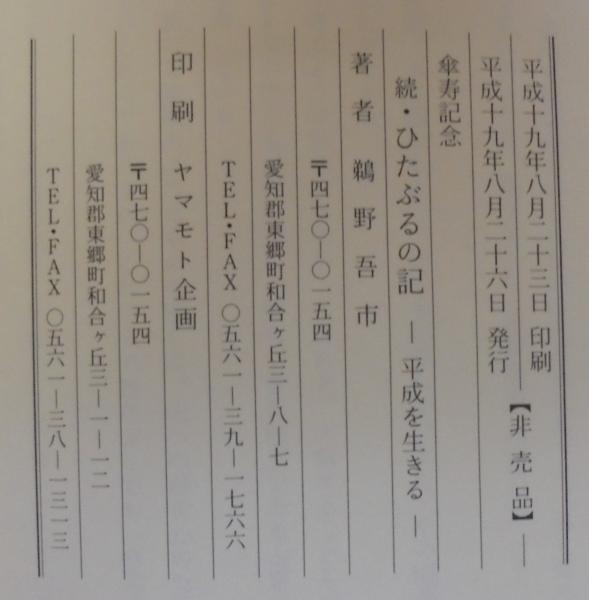 平成十九年八月二十三日 印刷
【非売品】
平成十九年八月二十六日 発行
傘寿記念
続・ひたぶるの記 ― 平成を生きる ―
著者 鵜野吾市
〒四七〇―〇一五四
愛知郡東郷町和合ヶ丘三―八―七
TEL・FAX 〇五六一―三九―一七六六
印刷 ヤマモト企画
〒四七〇―〇一五四
愛知郡東郷町和合ヶ丘三―一―一二
TEL・FAX 〇五六一―三八―一三一三